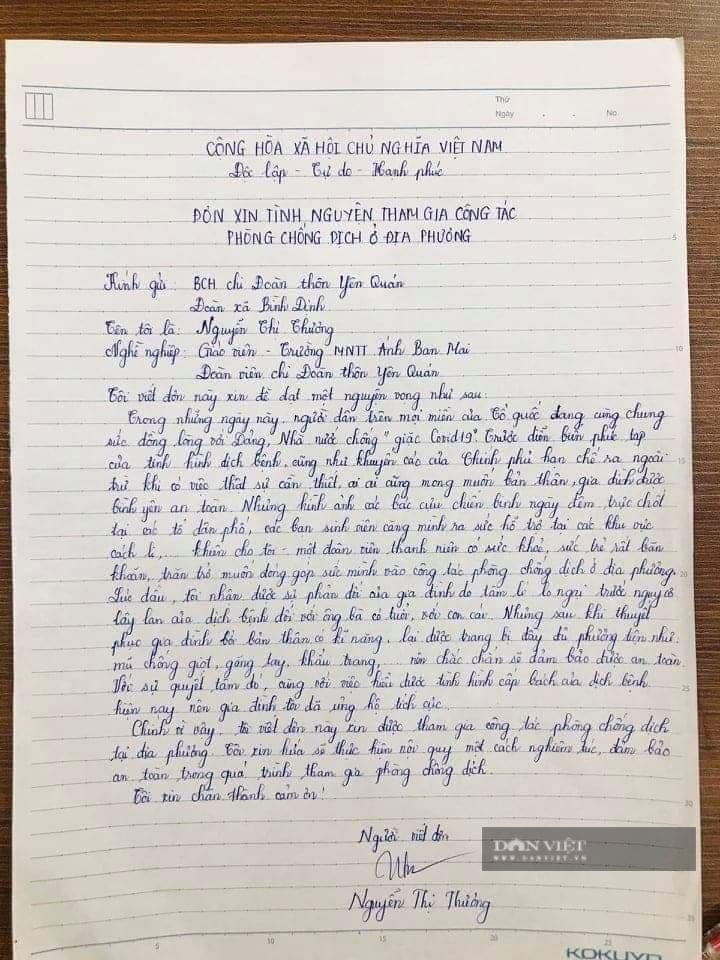 Thứ
Ngày . . No.
CỘNG HÒA XÃ HỘI CHỦ NGHĨA VIỆT NAM
Độc lập - Tự do - Hạnh phúc
ĐƠN XIN TÌNH NGUYỆN THAM GIA CÔNG TÁC
PHÒNG CHỐNG DỊCH Ở ĐỊA PHƯƠNG
Kính gửi: BCH chi Đoàn thôn Yên Quán
Đoàn xã Bình Định
Tên tôi là: Nguyễn Thị Thương
Nghề nghiệp: Giáo viên - Trường MNTT Ánh Ban Mai
Đoàn viên chi Đoàn thôn Yên Quán.
Tôi viết đơn này xin đề đạt một nguyện vọng như sau:
Trong những ngày này, người dân trên mọi miền của Tổ quốc đang cùng chung
sức đồng lòng với Đảng, Nhà nước chống "giặc Covid19". Trước diễn biến phức tạp
của tình hình dịch bệnh, cũng như khuyến cáo của Chính phủ hạn chế ra ngoài
trừ khi có việc thật sự cần thiết, ai ai cũng mong muốn bản thân, gia đình được
bình yên an toàn. Nhưng hình ảnh các bác cựu chiến binh ngày đêm trực chốt
tại các tổ dân phố, các bạn sinh viên căng mình ra sức hỗ trợ tại các khu vực
cách li,... khiến cho tôi - một đoàn viên thanh niên có sức khoẻ, sức trẻ rất băn
khoăn, trăn trở muốn đóng góp sức mình vào công tác phòng chống dịch ở địa phương.
Lúc đầu, tôi nhận được sự phản đối của gia đình do tâm lí lo nghị trước nguy cơ
lây lan của dịch bệnh đối với ông bà có tuổi, với con cái. Nhưng sau khi thuyết
phục gia đình bởi bản thân có kĩ năng, lại được trang bị đầy đủ phương tiện như
mũ chống giọt, găng tay, khẩu trang,... nên chắc chắn sẽ đảm bảo được an toàn.
Với sự quyết tâm đó, cùng với việc hiểu được tình hình cấp bách của dịch bệnh
hiện nay nên gia đình tôi đã ủng hộ tích cực.
Chính vì vậy, tôi viết đơn này xin được tham gia công tác phòng chống dịch
tại địa phương. Tôi xin hứa sẽ thực hiện nội quy một cách nghiêm túc, đảm bảo
an toàn trong quá trình tham gia phòng chống dịch.
Tôi xin chân thành cảm ơn!
Người viết đơn
Nguyễn Thị Thương
DÂN VIỆT
WWW.DANVIET.VN
5
10
15
20
25
30
35
5 10 15 20 25
KOKUYO